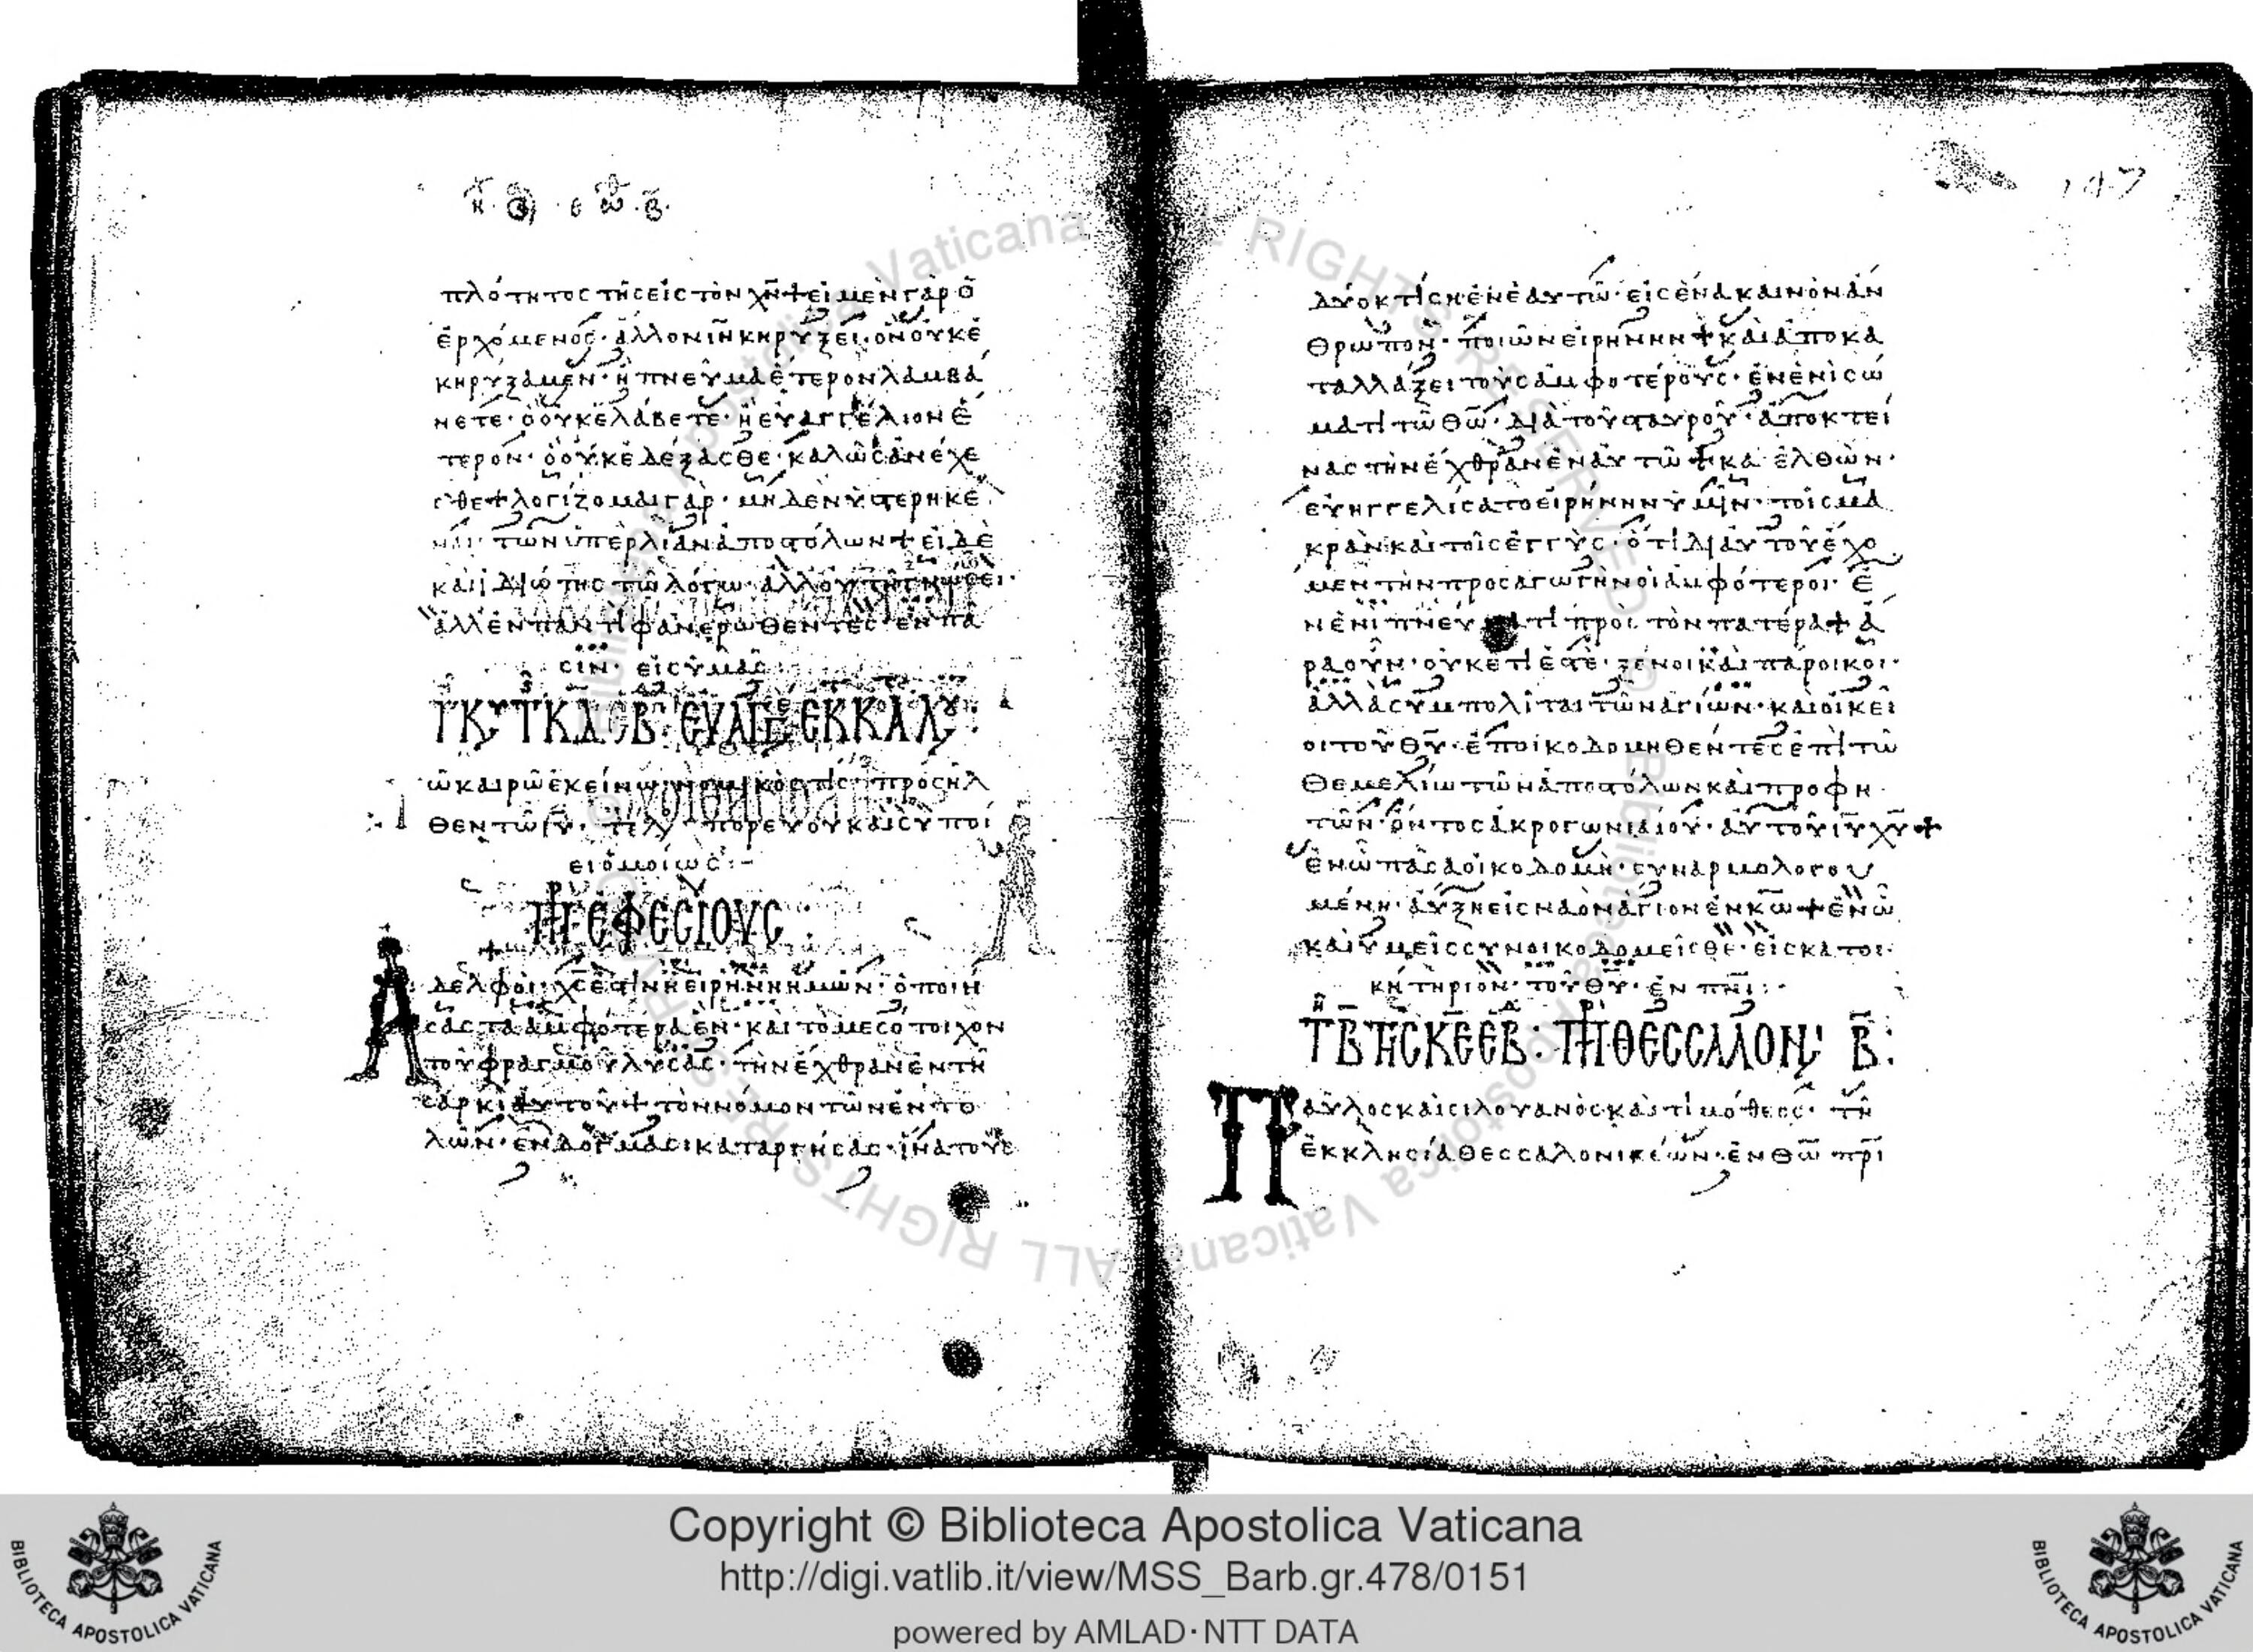 πλότητος τῆς εἰς τὸν χν + εἰ μὲν γὰρ ὁ
ἐρχόμενος· ἄλλον ιν κηρύξει· ὃν οὐκ ἐ
κηρύξαμεν· ἢ πνεῦμα ἕτερον λαμβά
νετε· ὃ οὐκ ἐλάβετε· ἢ εὐαγγέλιον ἕ
τερον· ὃ οὐκ ἐδέξασθε· καλῶς ἀνέχε
σθε + λογίζομαι γὰρ· μηδὲν ὑστερηκέ
ναι τῶν ὑπερλίαν ἀποστόλων + εἰ δὲ
καὶ ἰδιώτης τῶ λόγω· ἀλλ οὐ τῆ γνώσει·
ἀλλ ἐν παντὶ φανερωθέντες· ἐν πᾶ
σιν· εἰς ὑμᾶς
ῶ καιρῶ ἐκείνω νομικός τις προσῆλ
θεν τῶ ιυ· πορεύου καὶ σὺ ποί
ει ὁμοίως:-
ἐφεσίους
Αδελφοὶ· χς ἐστὶν ἡ εἰρήνη ἡμῶν· ὁ ποιή
σας τὰ ἀμφότερα ἓν· καὶ τὸ μεσότοιχον
τοῦ φραγμοῦ λύσας· τὴν ἔχθραν ἐν τῆ
σαρκὶ αὐτοῦ + τὸν νόμον τῶν ἐντο
λῶν· ἐν δόγμασι καταργήσας· ἵνα τοὺς
147
δύο κτίση ἐν ἑαυτῶ· εἰς ἕνα καινὸν ἄν
θρωπον· ποιῶν εἰρήνην + καὶ ἀποκα
ταλλάξει τοὺς ἀμφοτέρους· ἐν ἑνὶ σώ
ματι τῶ θω· διὰ τοῦ σταυροῦ· ἀποκτεί
νας τὴν ἔχθραν ἐν αὐτῶ + κα ἐλθὼν·
εὐηγγελίσατο εἰρήνην ὑμῖν· τοῖς μα
κρὰν καὶ τοῖς ἐγγύς· ὅτι δι αὐτοῦ ἔχο
μεν τὴν προσαγωγὴν οἱ ἀμφότεροι· ἐ
ν ἑνὶ πνεύματι πρὸς τὸν πατέρα + ἄ
ρα οὖν· οὐκέτι ἐστὲ· ξένοι καὶ πάροικοι·
ἀλλὰ συμπολίται τῶν ἁγίων· καὶ οἰκεῖ
οι τοῦ θυ· ἐποικοδομηθέντες ἐπὶ τῶ
θεμελίω τῶν ἀποστόλων καὶ προφη
τῶν· ὄντος ἀκρογωνιαίου· αὐτοῦ ιυ χυ +
ἐν ὧ πᾶσα οἰκοδομὴ· συναρμολογου
μένη· αὔξη εἰς ναὸν ἅγιον ἐν κω + ἐν ὧ
καὶ ὑμεῖς συνοικοδομεῖσθε· εἰς κατοι
κητήριον· τοῦ θυ· ἐν πνι:-
θεσσαλον β:
Παῦλος καὶ σιλουανὸς καὶ τιμόθεος· τῆ
ἐκκλησία θεσσαλονικέων· ἐν θω πρι
Copyright © Biblioteca Apostolica Vaticana
http://digi.vatlib.it/view/MSS_Barb.gr.478/0151
powered by AMLAD·NTT DATA
BIBLIOTECA APOSTOLICA VATICANA
BIBLIOTECA APOSTOLICA VATICANA